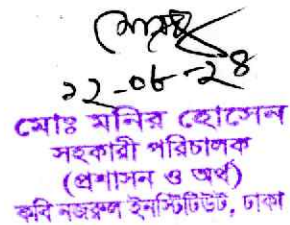 ১২-০৮-২৪
মোঃ মনির হোসেন
সহকারী পরিচালক
(প্রশাসন ও অর্থ)
কবি নজরুল ইনস্টিটিউট, ঢাকা